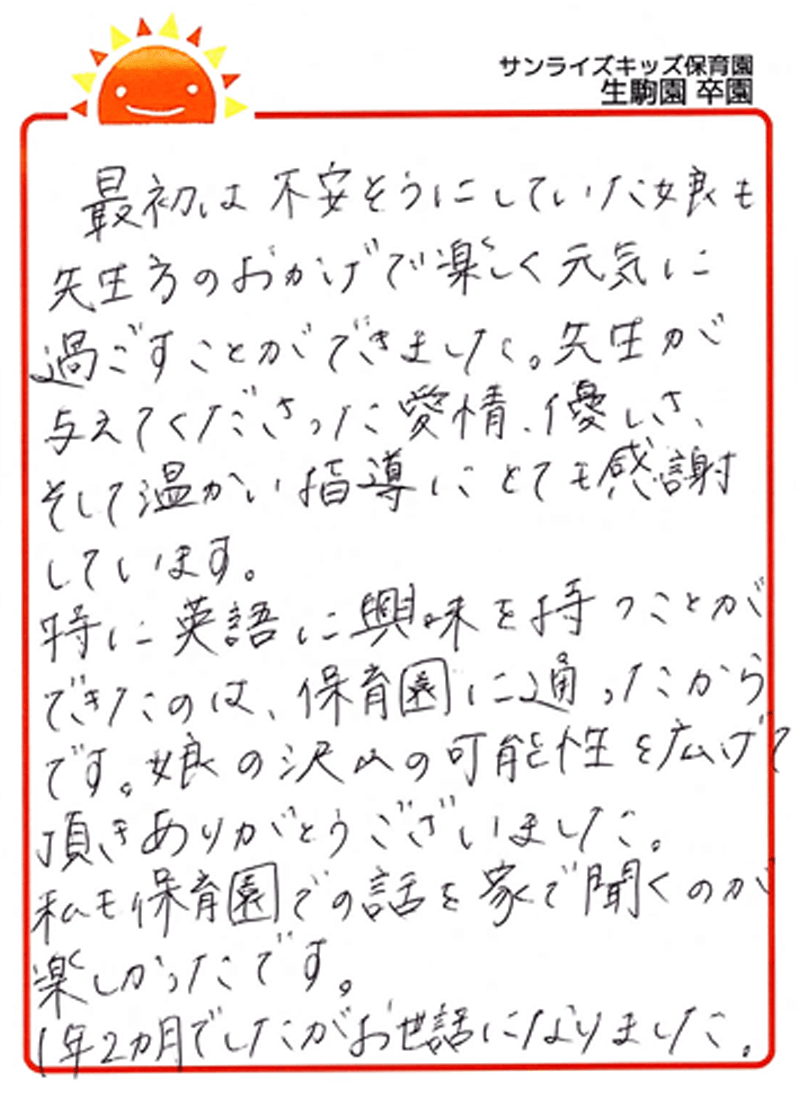 サンライズキッズ保育園
生駒園 卒園
最初は不安そうにしていた娘も
先生方のおかげで楽しく元気に
過ごすことができました。先生が
与えてくださった愛情、優しさ、
そして温かい指導にとても感謝
しています。
特に英語に興味を持つことが
できたのは、保育園に通ったから
です。娘の沢山の可能性を広げて
頂きありがとうございました。
私も保育園での話を家で聞くのが
楽しかったです。
1年2カ月でしたがお世話になりました。